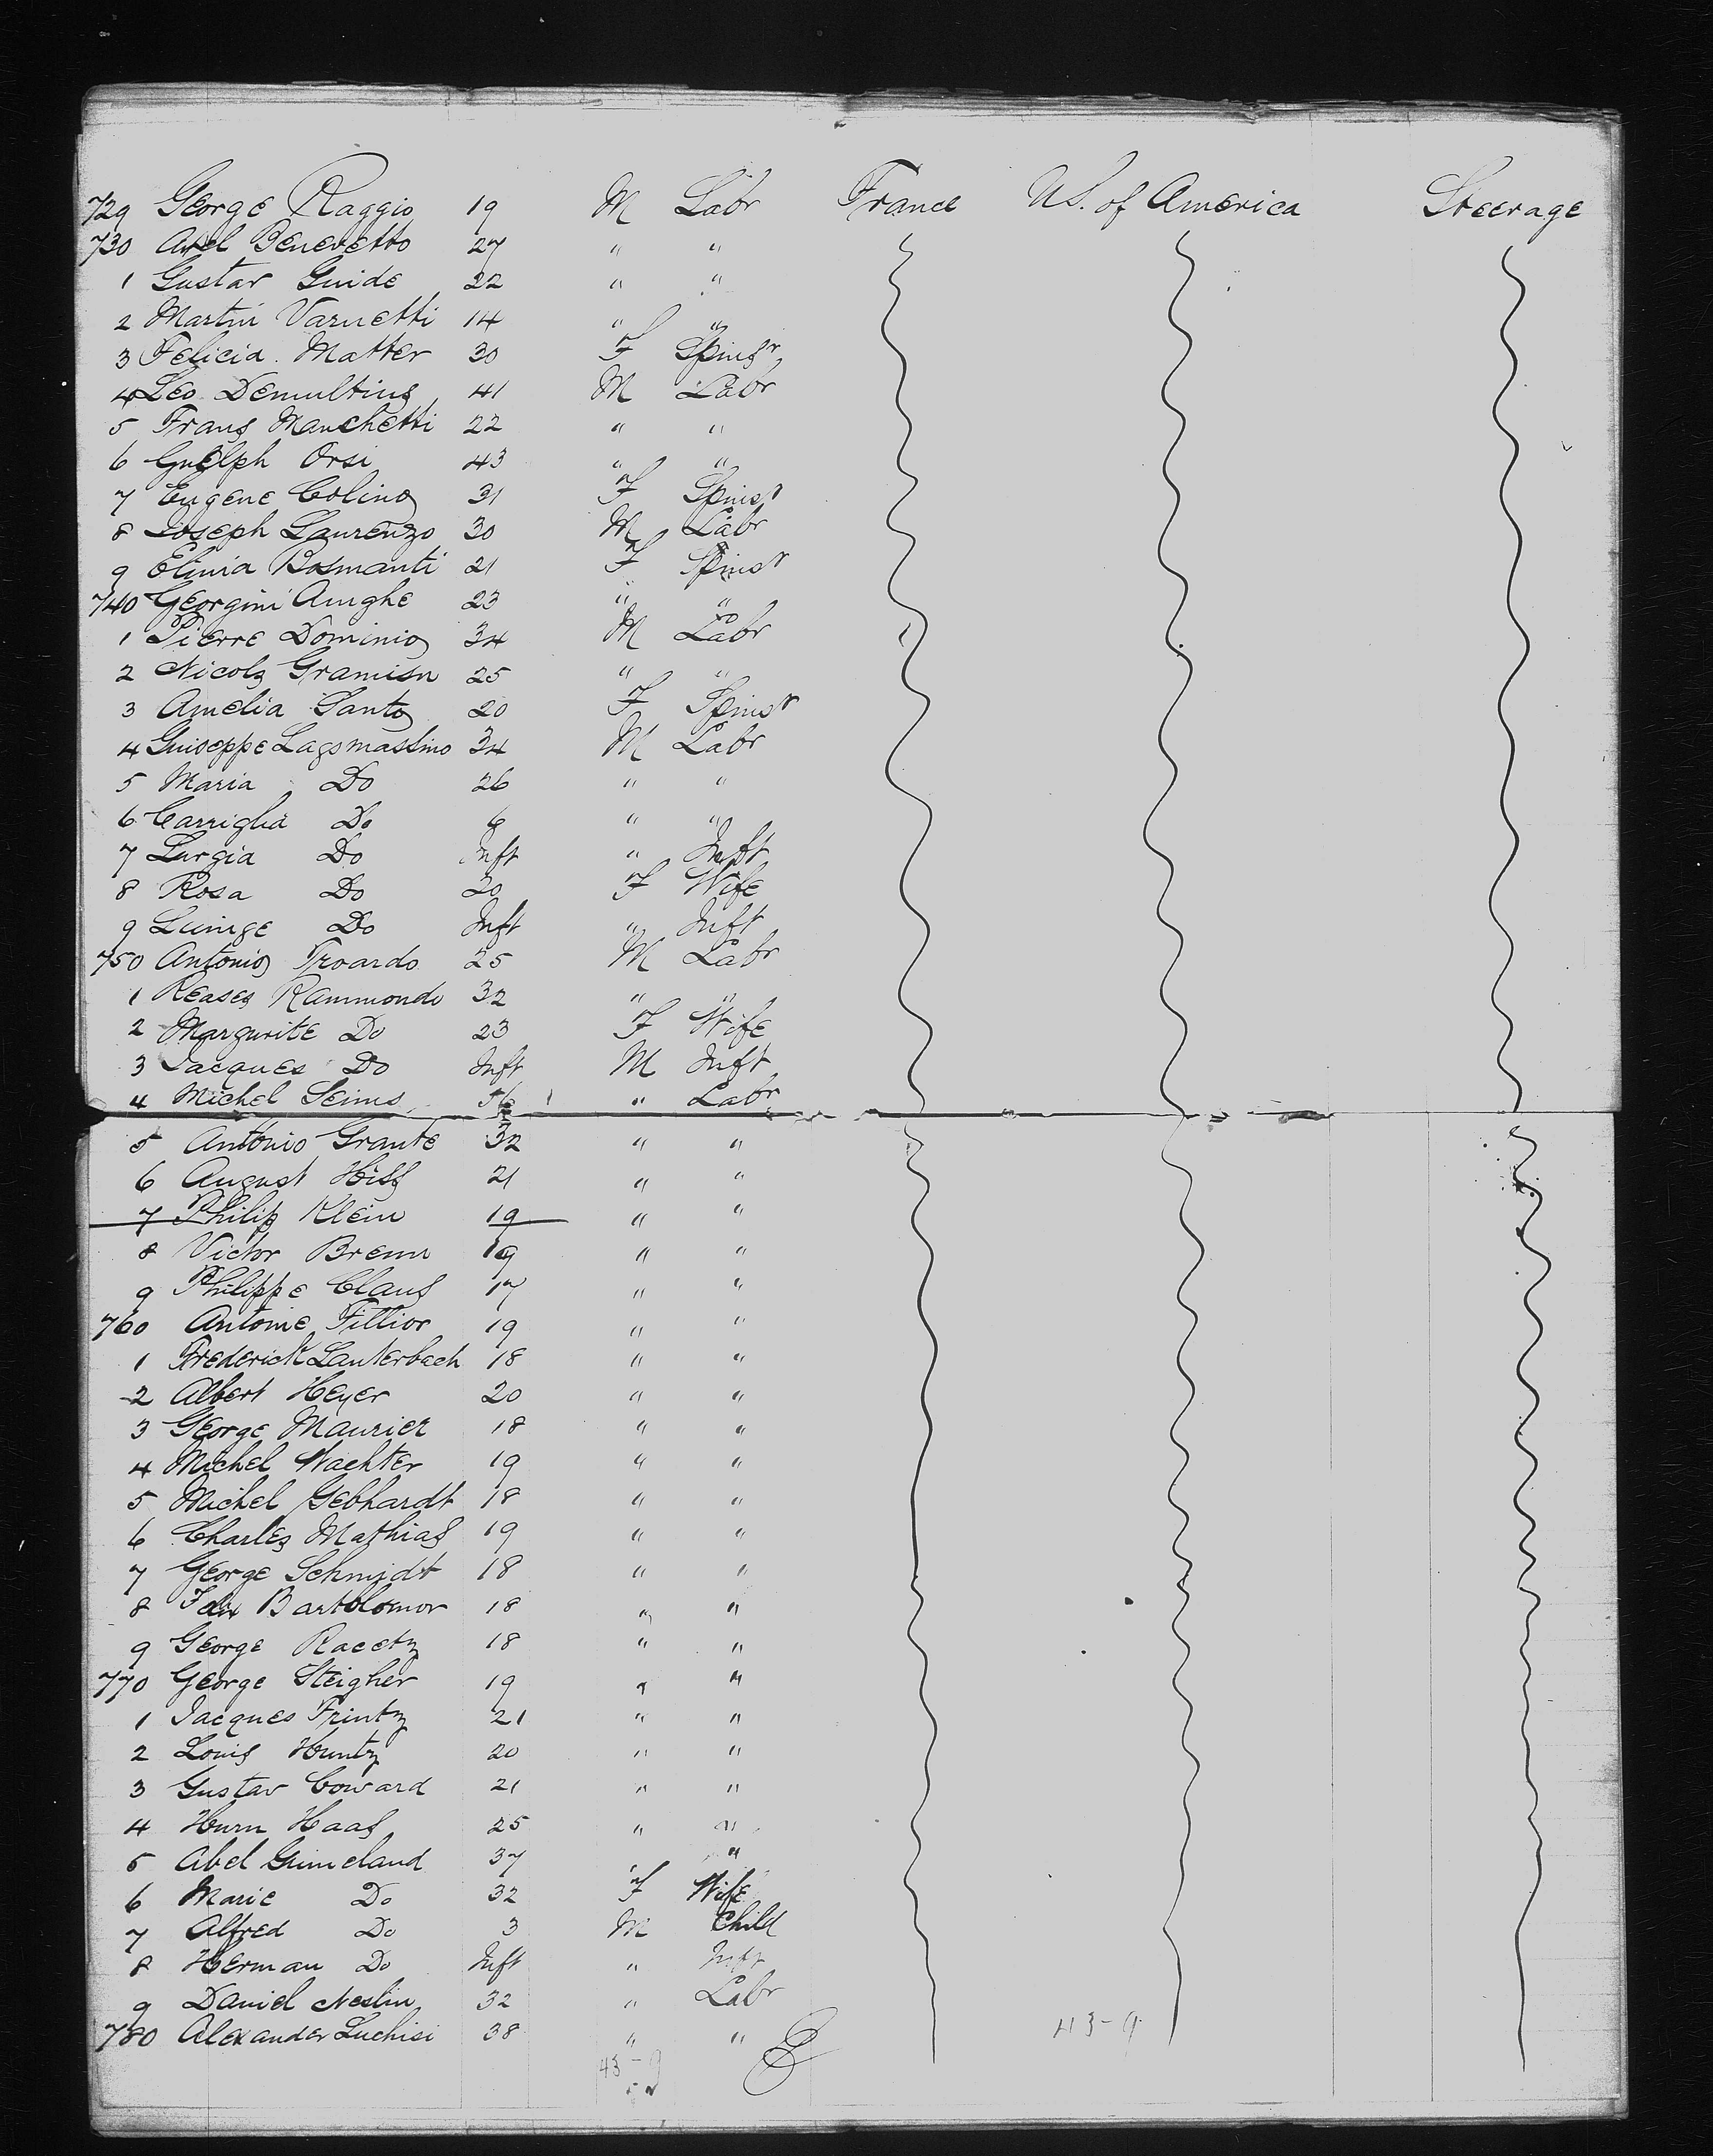 729 George Raggio 19 M Labr France U.S. of America Steerage
730 Axel Benevetto 27 " "
1 Gustav Guide 22 " "
2 Martin Varnetti 14 " "
3 Felicia Matter 30 F Spinsr
4 Leo Demultius 41 M Labr
5 Frans Manchetti 22 " "
6 Guelph Orsi 43 " "
7 Eugene Colino 31 F Spinst
8 Joseph Laurenzo 30 M Labr
9 Elinia Bosmanti 21 F Spinst
740 Georgini Amghe 23 " "
1 Pierre Dominio 34 M Labr
2 Nicola Gramisn 25 " "
3 Amelia Santo 20 F Spinst
4 Guiseppe Lagsmassino 34 M Labr
5 Maria Do 26 " "
6 Carriglia Do 6 " "
7 Lurgia Do Inft " Inft
8 Rosa Do 20 F Wife
9 Luinge Do Inft " Inft
750 Antonio Troardo 25 M Labr
1 Reases Rammondo 32 " "
2 Margurite Do 23 F Wife
3 Jacques Do Inft M Inft
4 Michel Seims " Labr
5 Antonio Grante 32 " "
6 August Hiss 21 " "
7 Philip Klein 19 " "
8 Victor Brenn 19 " "
9 Philippe Claus 17 " "
760 Antoine Fillior 19 " "
1 Frederick Lauterbach 18 " "
2 Albert Heyer 20 " "
3 George Maurier 18 " "
4 Michel Wachter 19 " "
5 Michel Gebhardt 18 " "
6 Charles Mathias 19 " "
7 George Schmidt 18 " "
8 Bartolomor 18 " "
9 George Racetz 18 " "
770 George Steigher 19 " "
1 Jacques Frintz 21 " "
2 Louis Huntz 20 " "
3 Gustav Coward 21 " "
4 Hurn Haas 25 " "
5 Abel Grimeland 37 " "
6 Marie Do 32 F Wife
7 Alfred Do 3 M Child
8 Herman Do Inft " Inft
9 Daniel Neslin 32 " Labr
780 Alexander Luchisi 38 " " 43-9
43-9